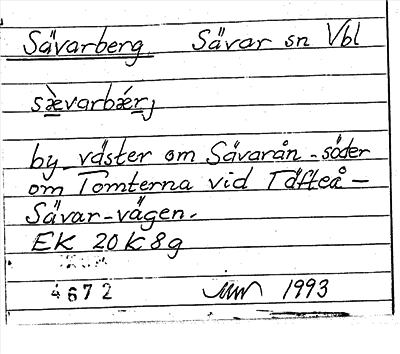 Sävarberg Sävar sn Vbl
sæ̀varbǽrj
by väster om Sävarån - söder
om Tomterna vid Täfteå -
Sävar-vägen.
EK 20K8g
4672 1993